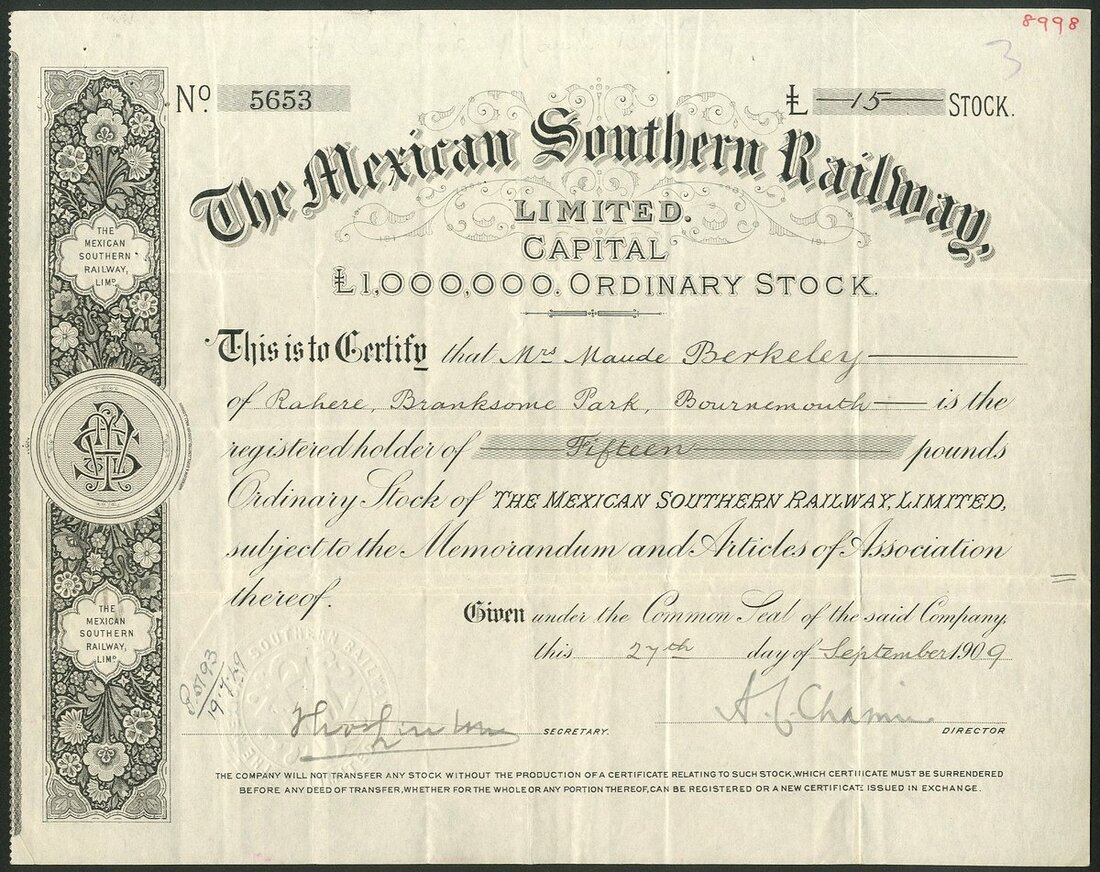 8998
3
No 5653
£ 15 STOCK.
The Mexican Southern Railway,
LIMITED.
CAPITAL
£1,000,000. ORDINARY STOCK.
This is to Certify that Mrs Maude Berkeley
of Rahere, Branksome Park, Bournemouth is the
registered holder of Fifteen pounds
Ordinary Stock of THE MEXICAN SOUTHERN RAILWAY, LIMITED,
subject to the Memorandum and Articles of Association
thereof.
Given under the Common Seal of the said Company,
this 27th day of September 1909
SECRETARY.
DIRECTOR
THE COMPANY WILL NOT TRANSFER ANY STOCK WITHOUT THE PRODUCTION OF A CERTIFICATE RELATING TO SUCH STOCK, WHICH CERTIFICATE MUST BE SURRENDERED
BEFORE ANY DEED OF TRANSFER, WHETHER FOR THE WHOLE OR ANY PORTION THEREOF, CAN BE REGISTERED OR A NEW CERTIFICATE ISSUED IN EXCHANGE.
THE
MEXICAN
SOUTHERN
RAILWAY,
LIMD.
THE
MEXICAN
SOUTHERN
RAILWAY,
LIMD.